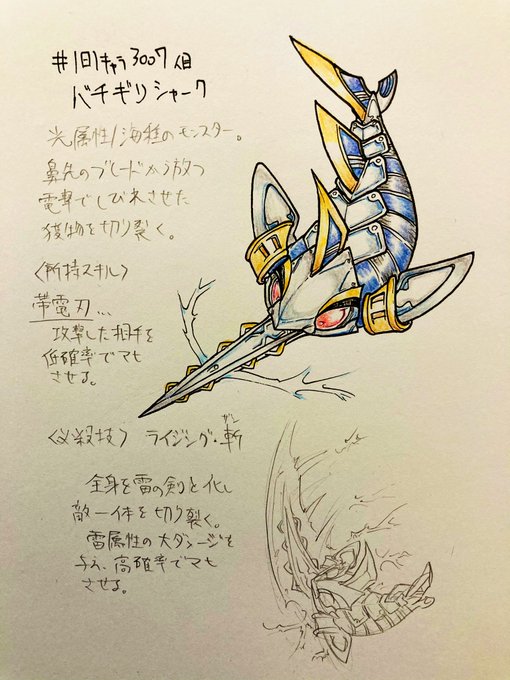 #1日1キャラ3007人目
バチギリシャーク
光属性/海種のモンスター。
鼻先のブレードから放つ
電撃でしびれさせた
獲物を切り裂く。
<所持スキル>
帯電刃…
攻撃した相手を
低確率でマヒ
させる。
<必殺技> ライジング・斬
ザン
全身を雷の剣と化し
敵一体を切り裂く。
雷属性の大ダメージを
与え、高確率でマヒ
させる。